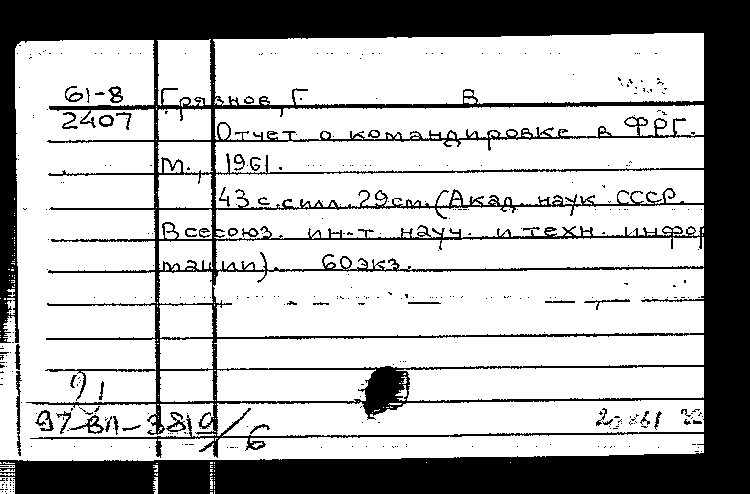 61-8 Грязнов, Г. В
2407 Отчет о командировке в ФРГ.
М., 1961.
43 с. с илл. 29 см. (Акад. наук СССР.
Всесоюз. ин-т науч. и техн. инфор
мации). 60 экз.
97-ВЛ-3819/6